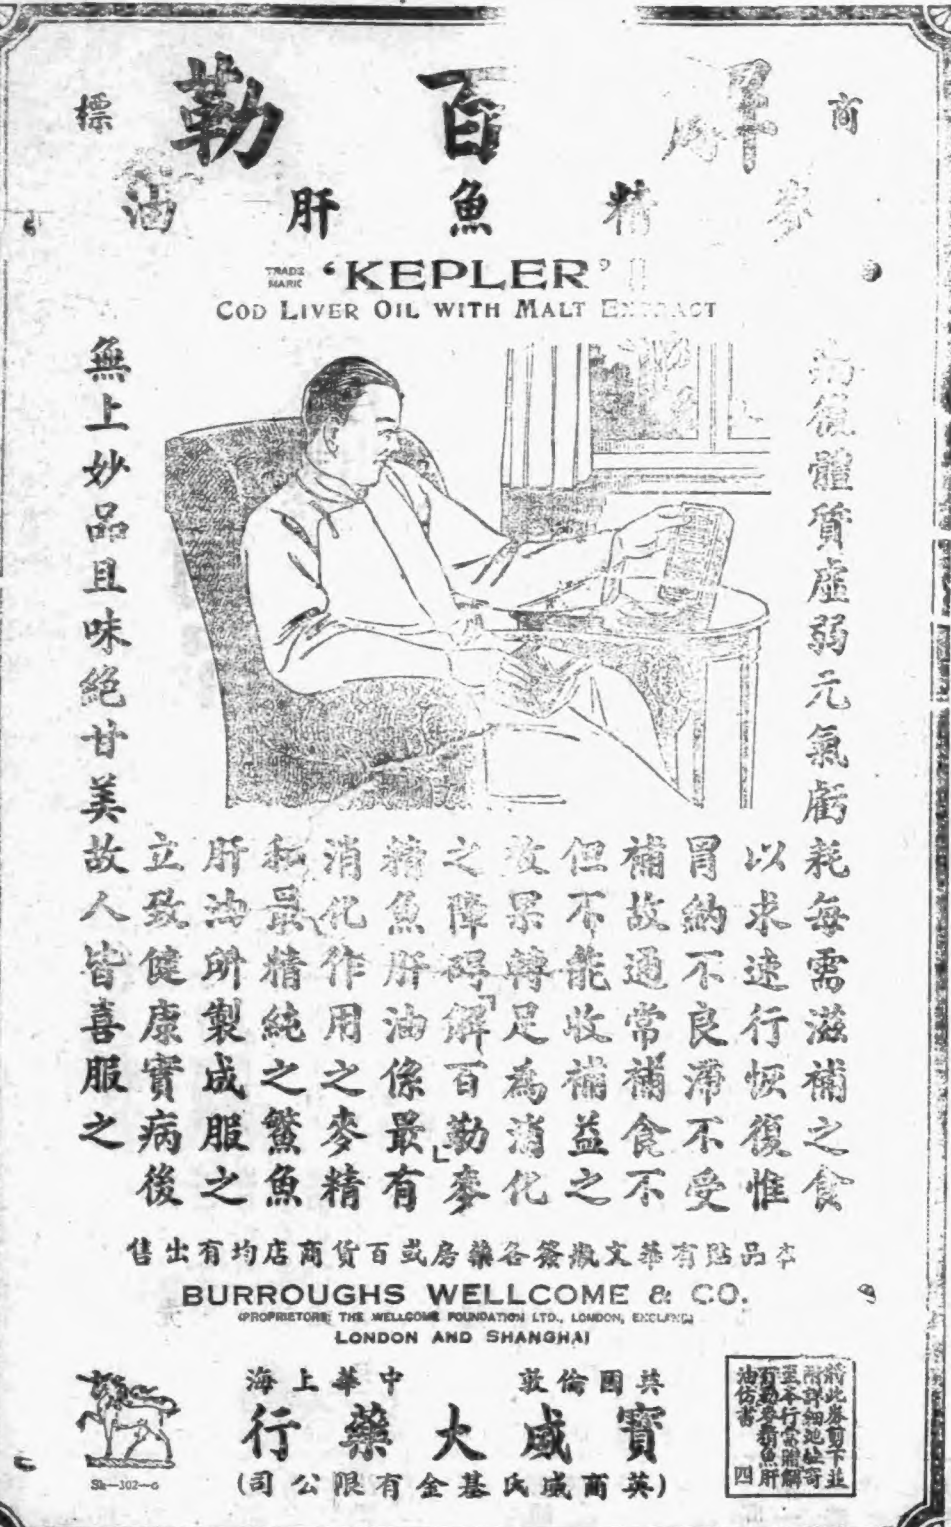 商 解百勒 標
麥精魚肝油
TRADE MARK 'KEPLER'
COD LIVER OIL WITH MALT EXTRACT
病後體質虛弱元氣虧耗每需滋補之食
以求速行恢復惟
胃納不良滯不受
補故通常補食不
但不能收補益之
效果轉足為消化
之障碍「解百勒」麥
精魚肝油係最有
消化作用之麥精
和最精純之鱉魚
肝油所製成服之
立致健康實病後
無上妙品且味絕甘美故人皆喜服之
本品貼有華文瓶簽各藥房或百貨商店均有出售
BURROUGHS WELLCOME & CO.
(PROPRIETORS: THE WELLCOME FOUNDATION LTD., LONDON, ENGLAND)
LONDON AND SHANGHAI
英國倫敦 中華上海
寶威大藥行
(英商威氏基金有限公司)
Sh—102—6
將此券剪下並
附詳細地址寄
至本行當贈解
百勒麥精魚肝
油仿書 四